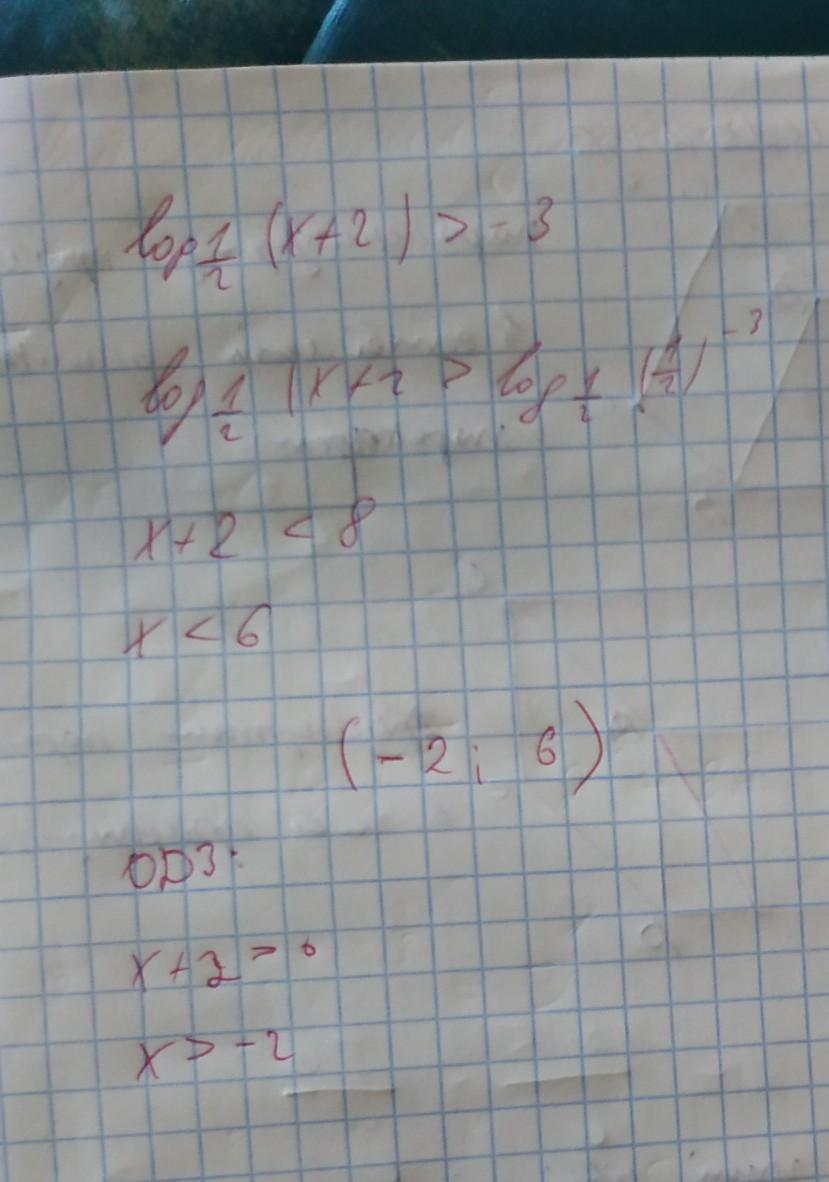 log 1/2 (x+2) > -3
log 1/2 (x+2 > log 1/2 (1/2)^-3
x+2 < 8
x < 6
(-2; 6)
ОДЗ:
x+2 > 0
x > -2